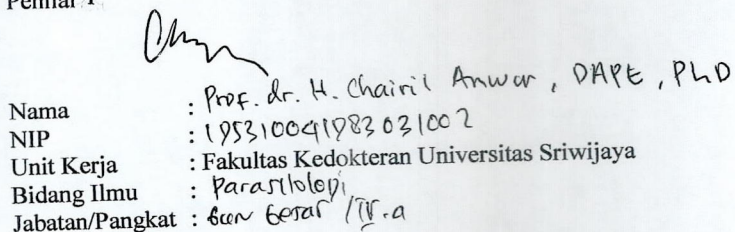 Penilai 1
Nama : Prof. dr. H. Chairil Anwar, DAPE, PhD
NIP : 195310041983031002
Unit Kerja : Fakultas Kedokteran Universitas Sriwijaya
Bidang Ilmu : Parasitologi
Jabatan/Pangkat : Guru Besar / IV.a